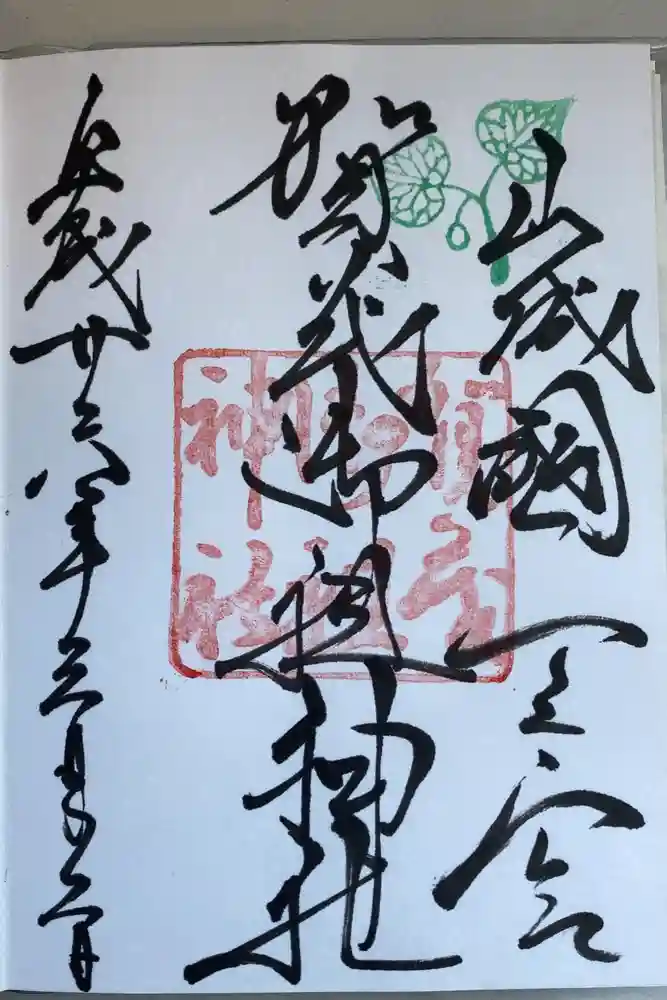 山城國一之宮
賀茂御祖神社
平成廿六年三月
賀茂
御祖
神社